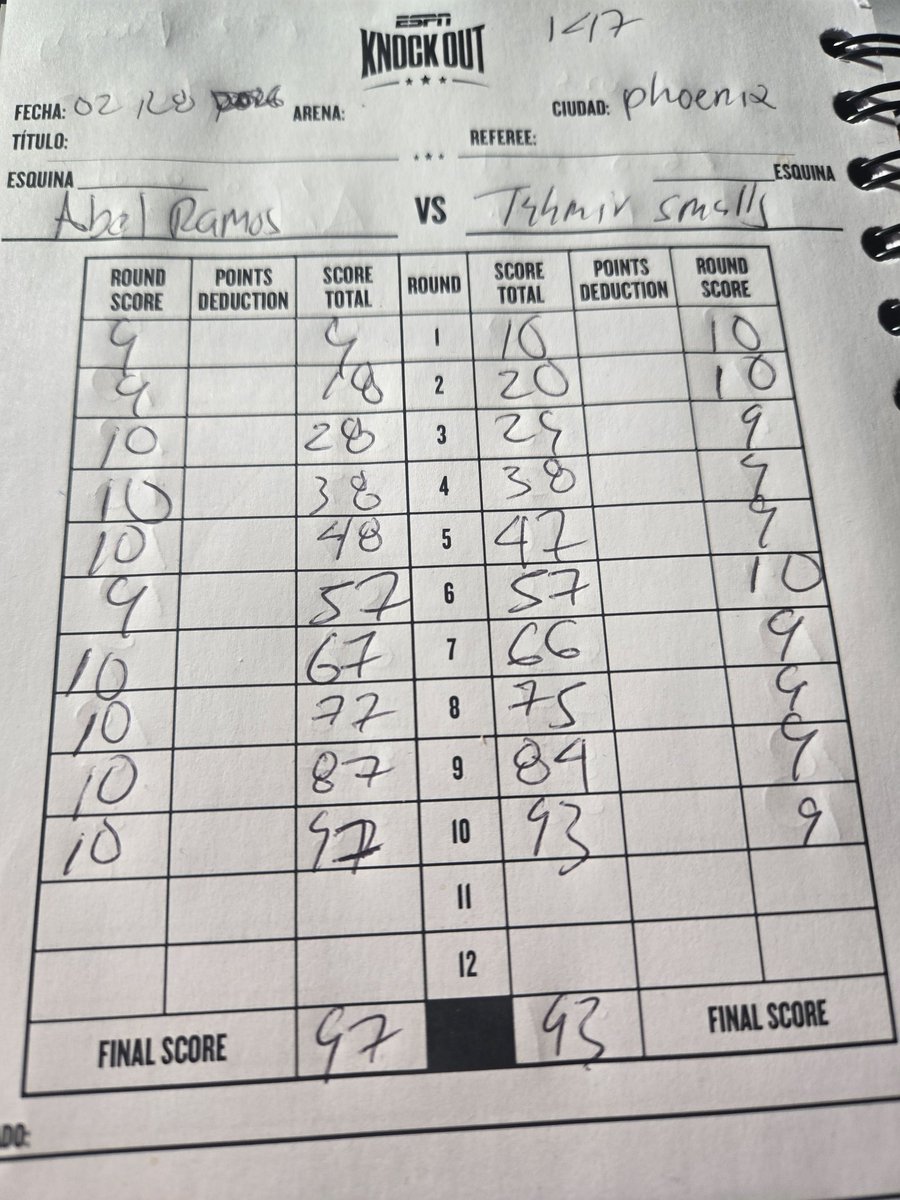 ESPN
KNOCK OUT
147
FECHA: 02 /28 2026 ARENA: CIUDAD: phoenix
TÍTULO: REFEREE:
ESQUINA ESQUINA
Abel Ramos VS Tahmir smalls
ROUND SCORE POINTS DEDUCTION SCORE TOTAL ROUND SCORE TOTAL POINTS DEDUCTION ROUND SCORE
9 9 1 10 10
9 18 2 20 10
10 28 3 29 9
10 38 4 38 9
10 48 5 47 9
9 57 6 57 10
10 67 7 66 9
10 77 8 75 9
10 87 9 84 9
10 97 10 93 9
11
12
FINAL SCORE 97 93 FINAL SCORE